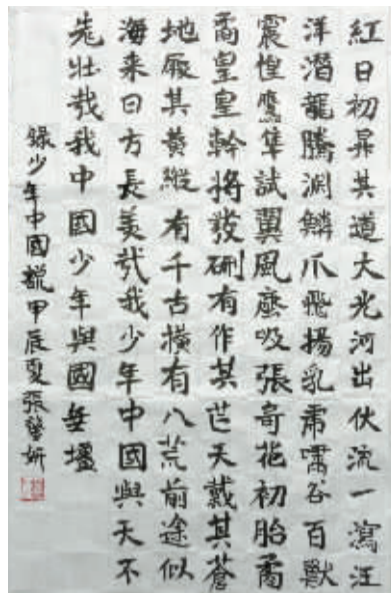 紅日初昇其道大光河出伏流一瀉汪
洋潛龍騰淵鱗爪飛揚乳虎嘯谷百獸
震惶鷹隼試翼風塵吸張奇花初胎矞
矞皇皇幹將發硎有作其芒天戴其蒼
地履其黃縱有千古橫有八荒前途似
海来日方長美哉我少年中國與天不
老壯哉我中國少年與國無壃
錄少年中國說甲辰夏張妍